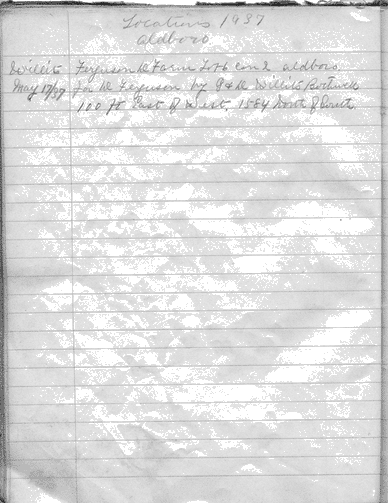 Locations 1937
Aldboro
Willits Ferguson D Farm Lot 6 con 2 aldboro
May 17/37 for D Ferguson by G & R Willits Bothwell
100 ft East of West, 1584 North of South